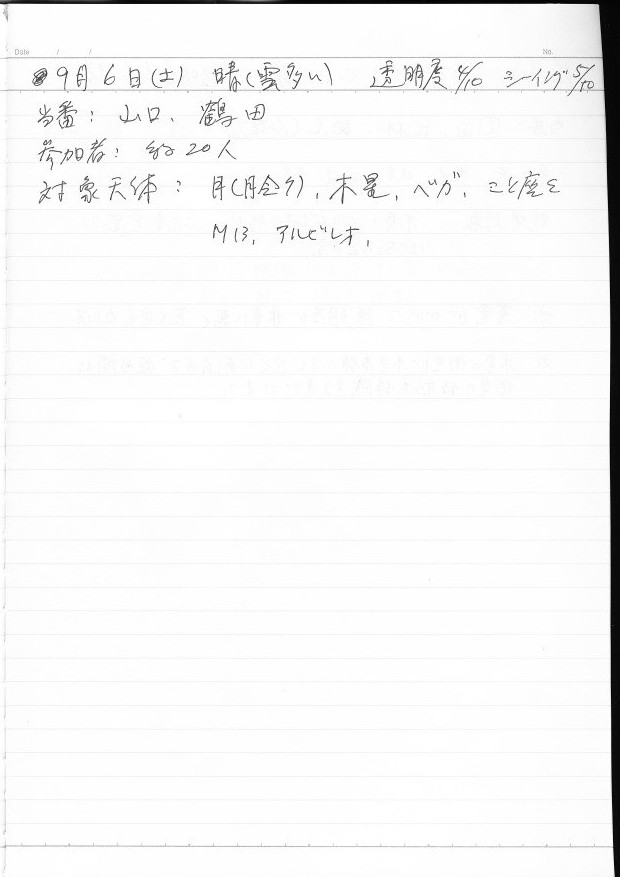 Date / / No.
9月6日(土) 晴(雲多い) 透明度4/10 シーイング5/10
当番: 山口、鶴田
参加者: 約20人
対象天体: 月(月令9), 木星, ベガ, こと座ε
M13, アルビレオ,